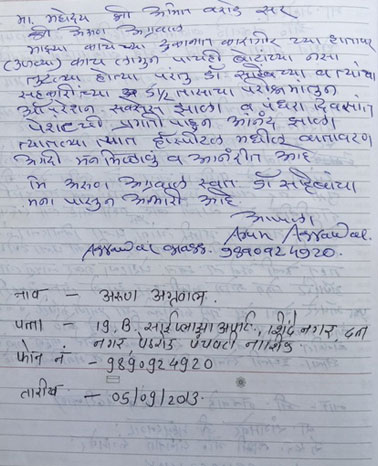 मा. महोदय श्री अमित वराड सर
श्री अरुण अग्रवाल
माझ्या काचेच्या दुकानात कारागीर च्या हाताला
(उजव्या) काच लागुन पाचही बोटांच्या नसा
तुटल्या होत्या परंतु डॉ साहेबांच्या व त्यांच्या
सहकारी च्या 5½ तासाच्या परिश्रमातुन
ऑपरेशन सक्सेस झाला व पंधरा दिवसांत
पेशंटची प्रगती पाहुन आनंद झाला
त्यातल्या त्यात हॉस्पीटल मधील वातावरण
अगदी मनमिळावु व आनंदीत आहे
मि अरुण अग्रवाल स्वतः डॉ साहेबांचा
मना पासुन आभारी आहे.
आपला
Arun Agrawal
Agrawal Glass. 9890924920.
नाव - अरुण अग्रवाल.
पत्ता - 19, B, साईप्लाझा अपार्ट, शिंदे नगर, दत्त
नगर, पेठरोड पंचवटी नाशिक
फोन नं - 9890924920
तारीख - 05/09/2013.